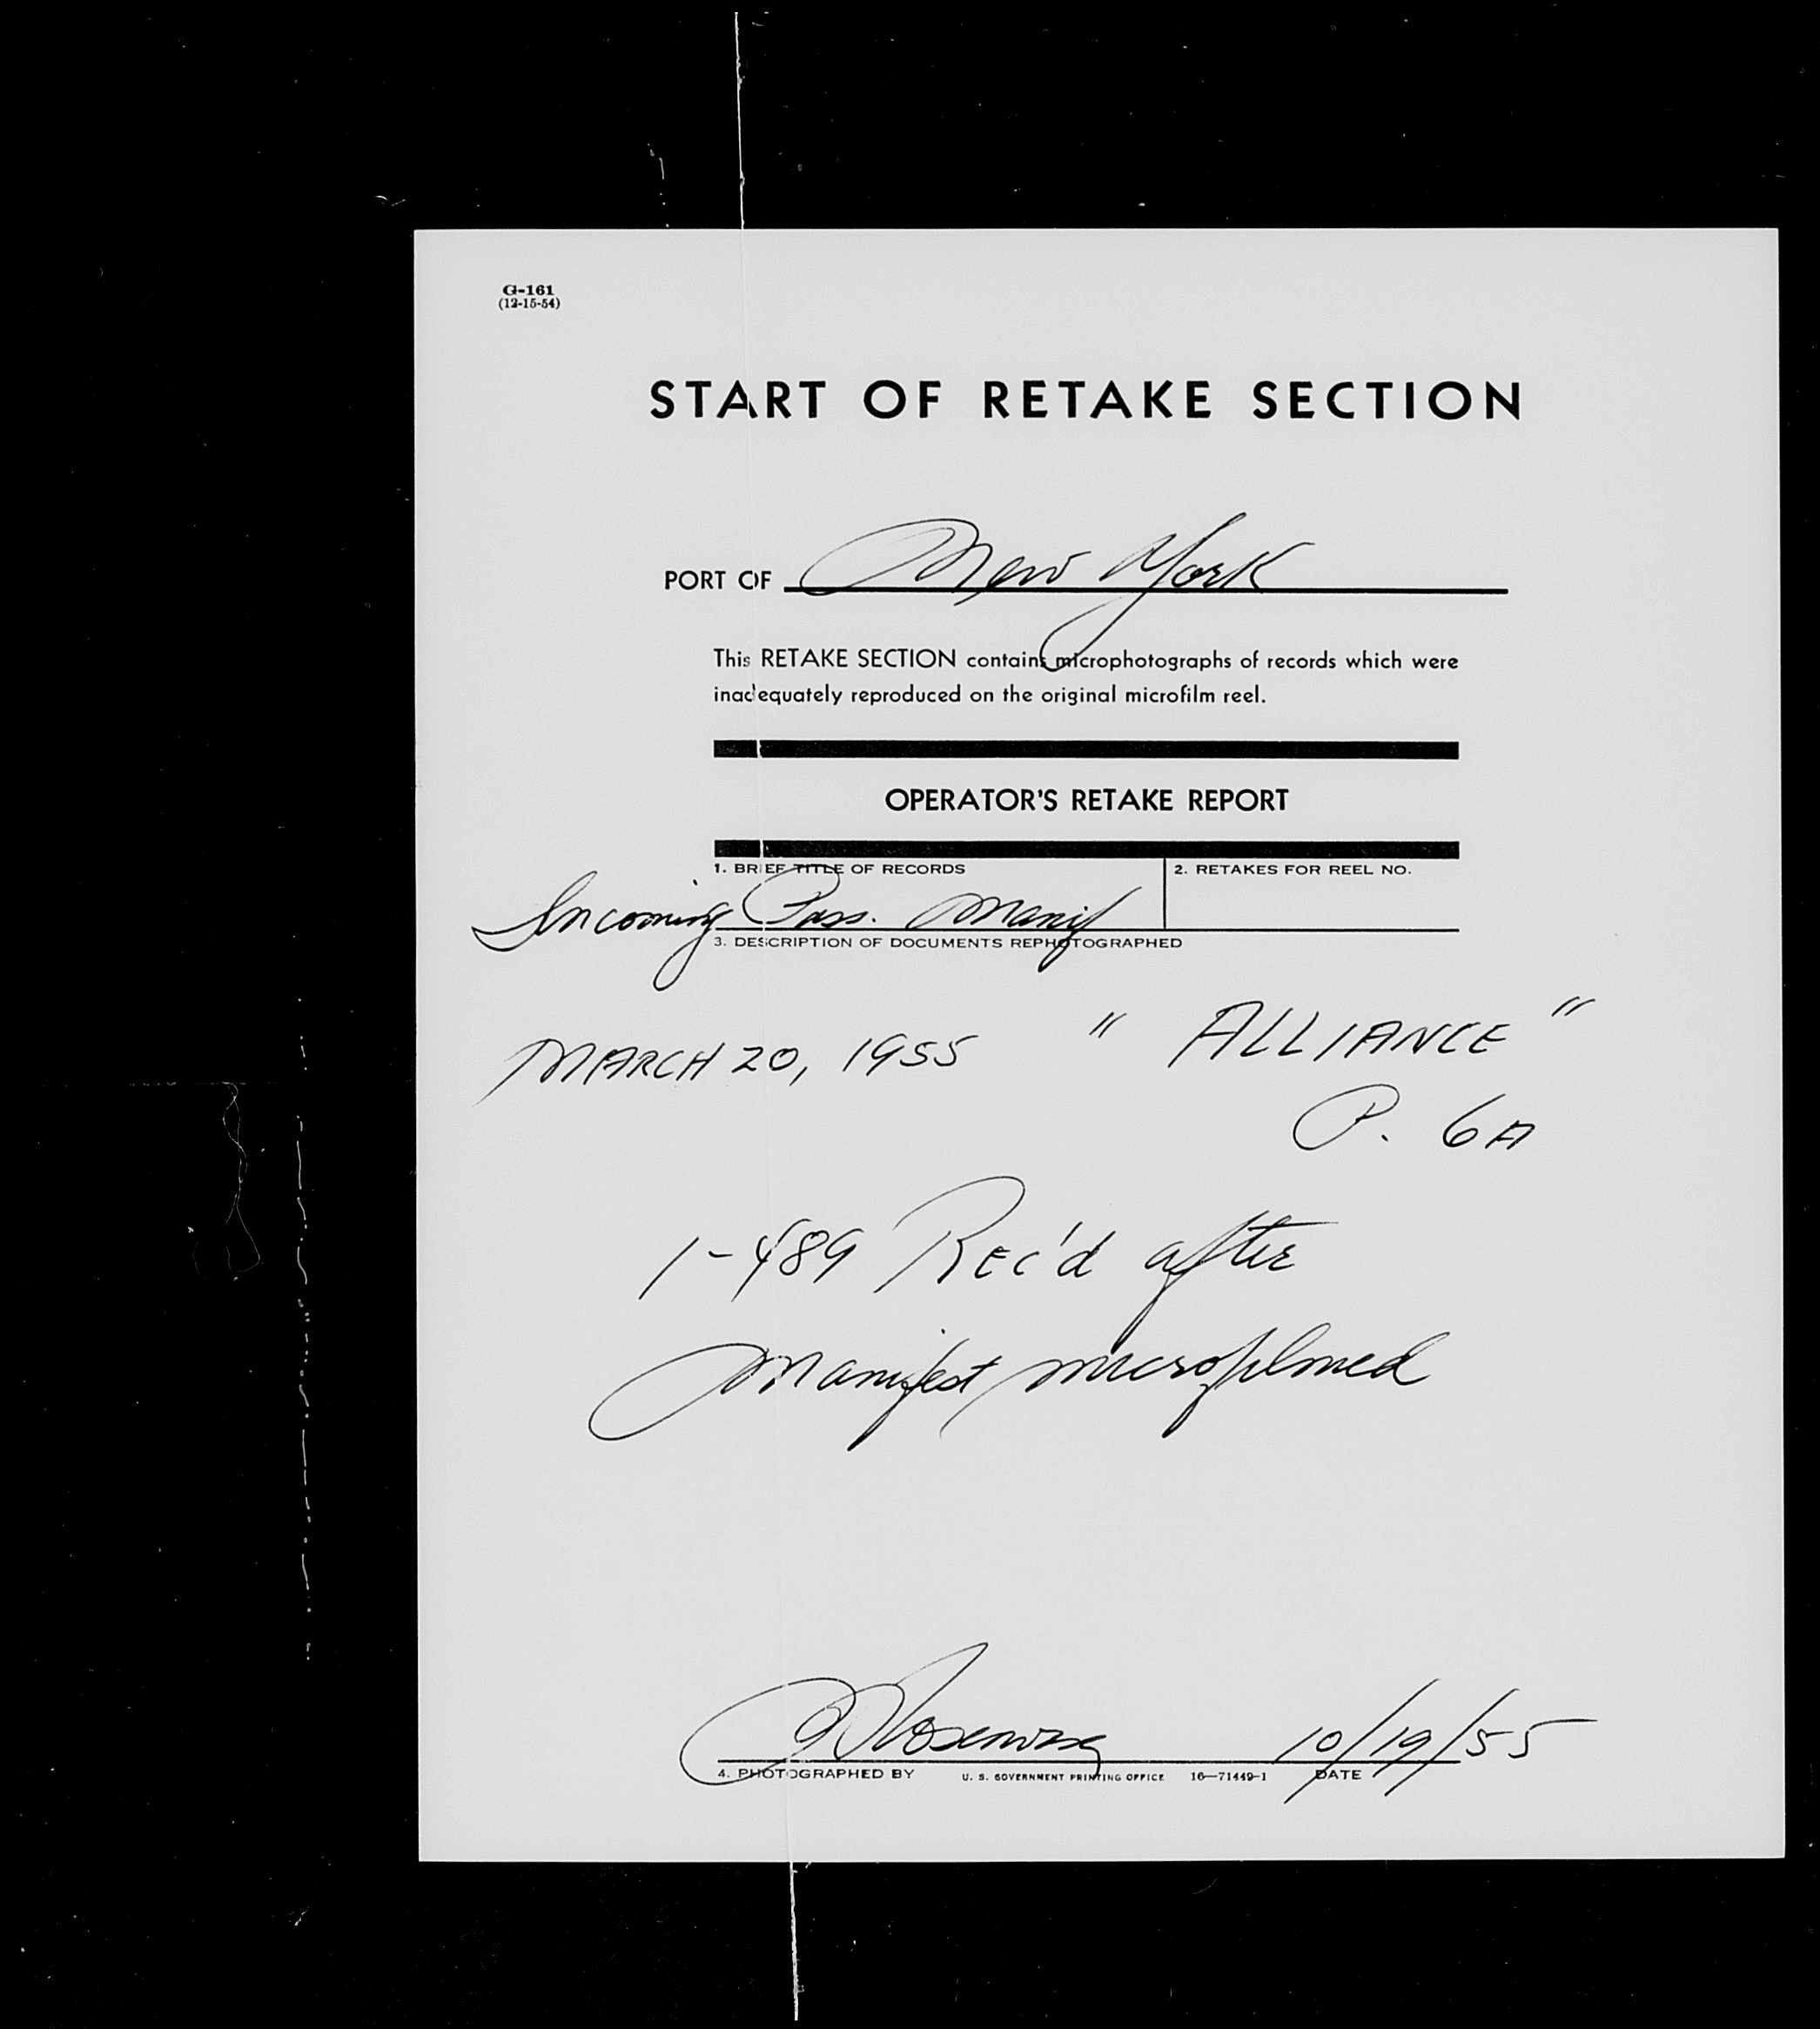 G-161
(12-15-54)
START OF RETAKE SECTION
PORT OF New York
This RETAKE SECTION contains microphotographs of records which were
inadequately reproduced on the original microfilm reel.
OPERATOR'S RETAKE REPORT
1. BRIEF TITLE OF RECORDS 2. RETAKES FOR REEL NO.
Incoming Pass. Manif
3. DESCRIPTION OF DOCUMENTS REPHOTOGRAPHED
MARCH 20, 1955 " ALLIANCE "
P. 6A
1-489 Rec'd after
Manifest microfilmed
10/19/55
4. PHOTOGRAPHED BY U. S. GOVERNMENT PRINTING OFFICE 16—71449-1 DATE